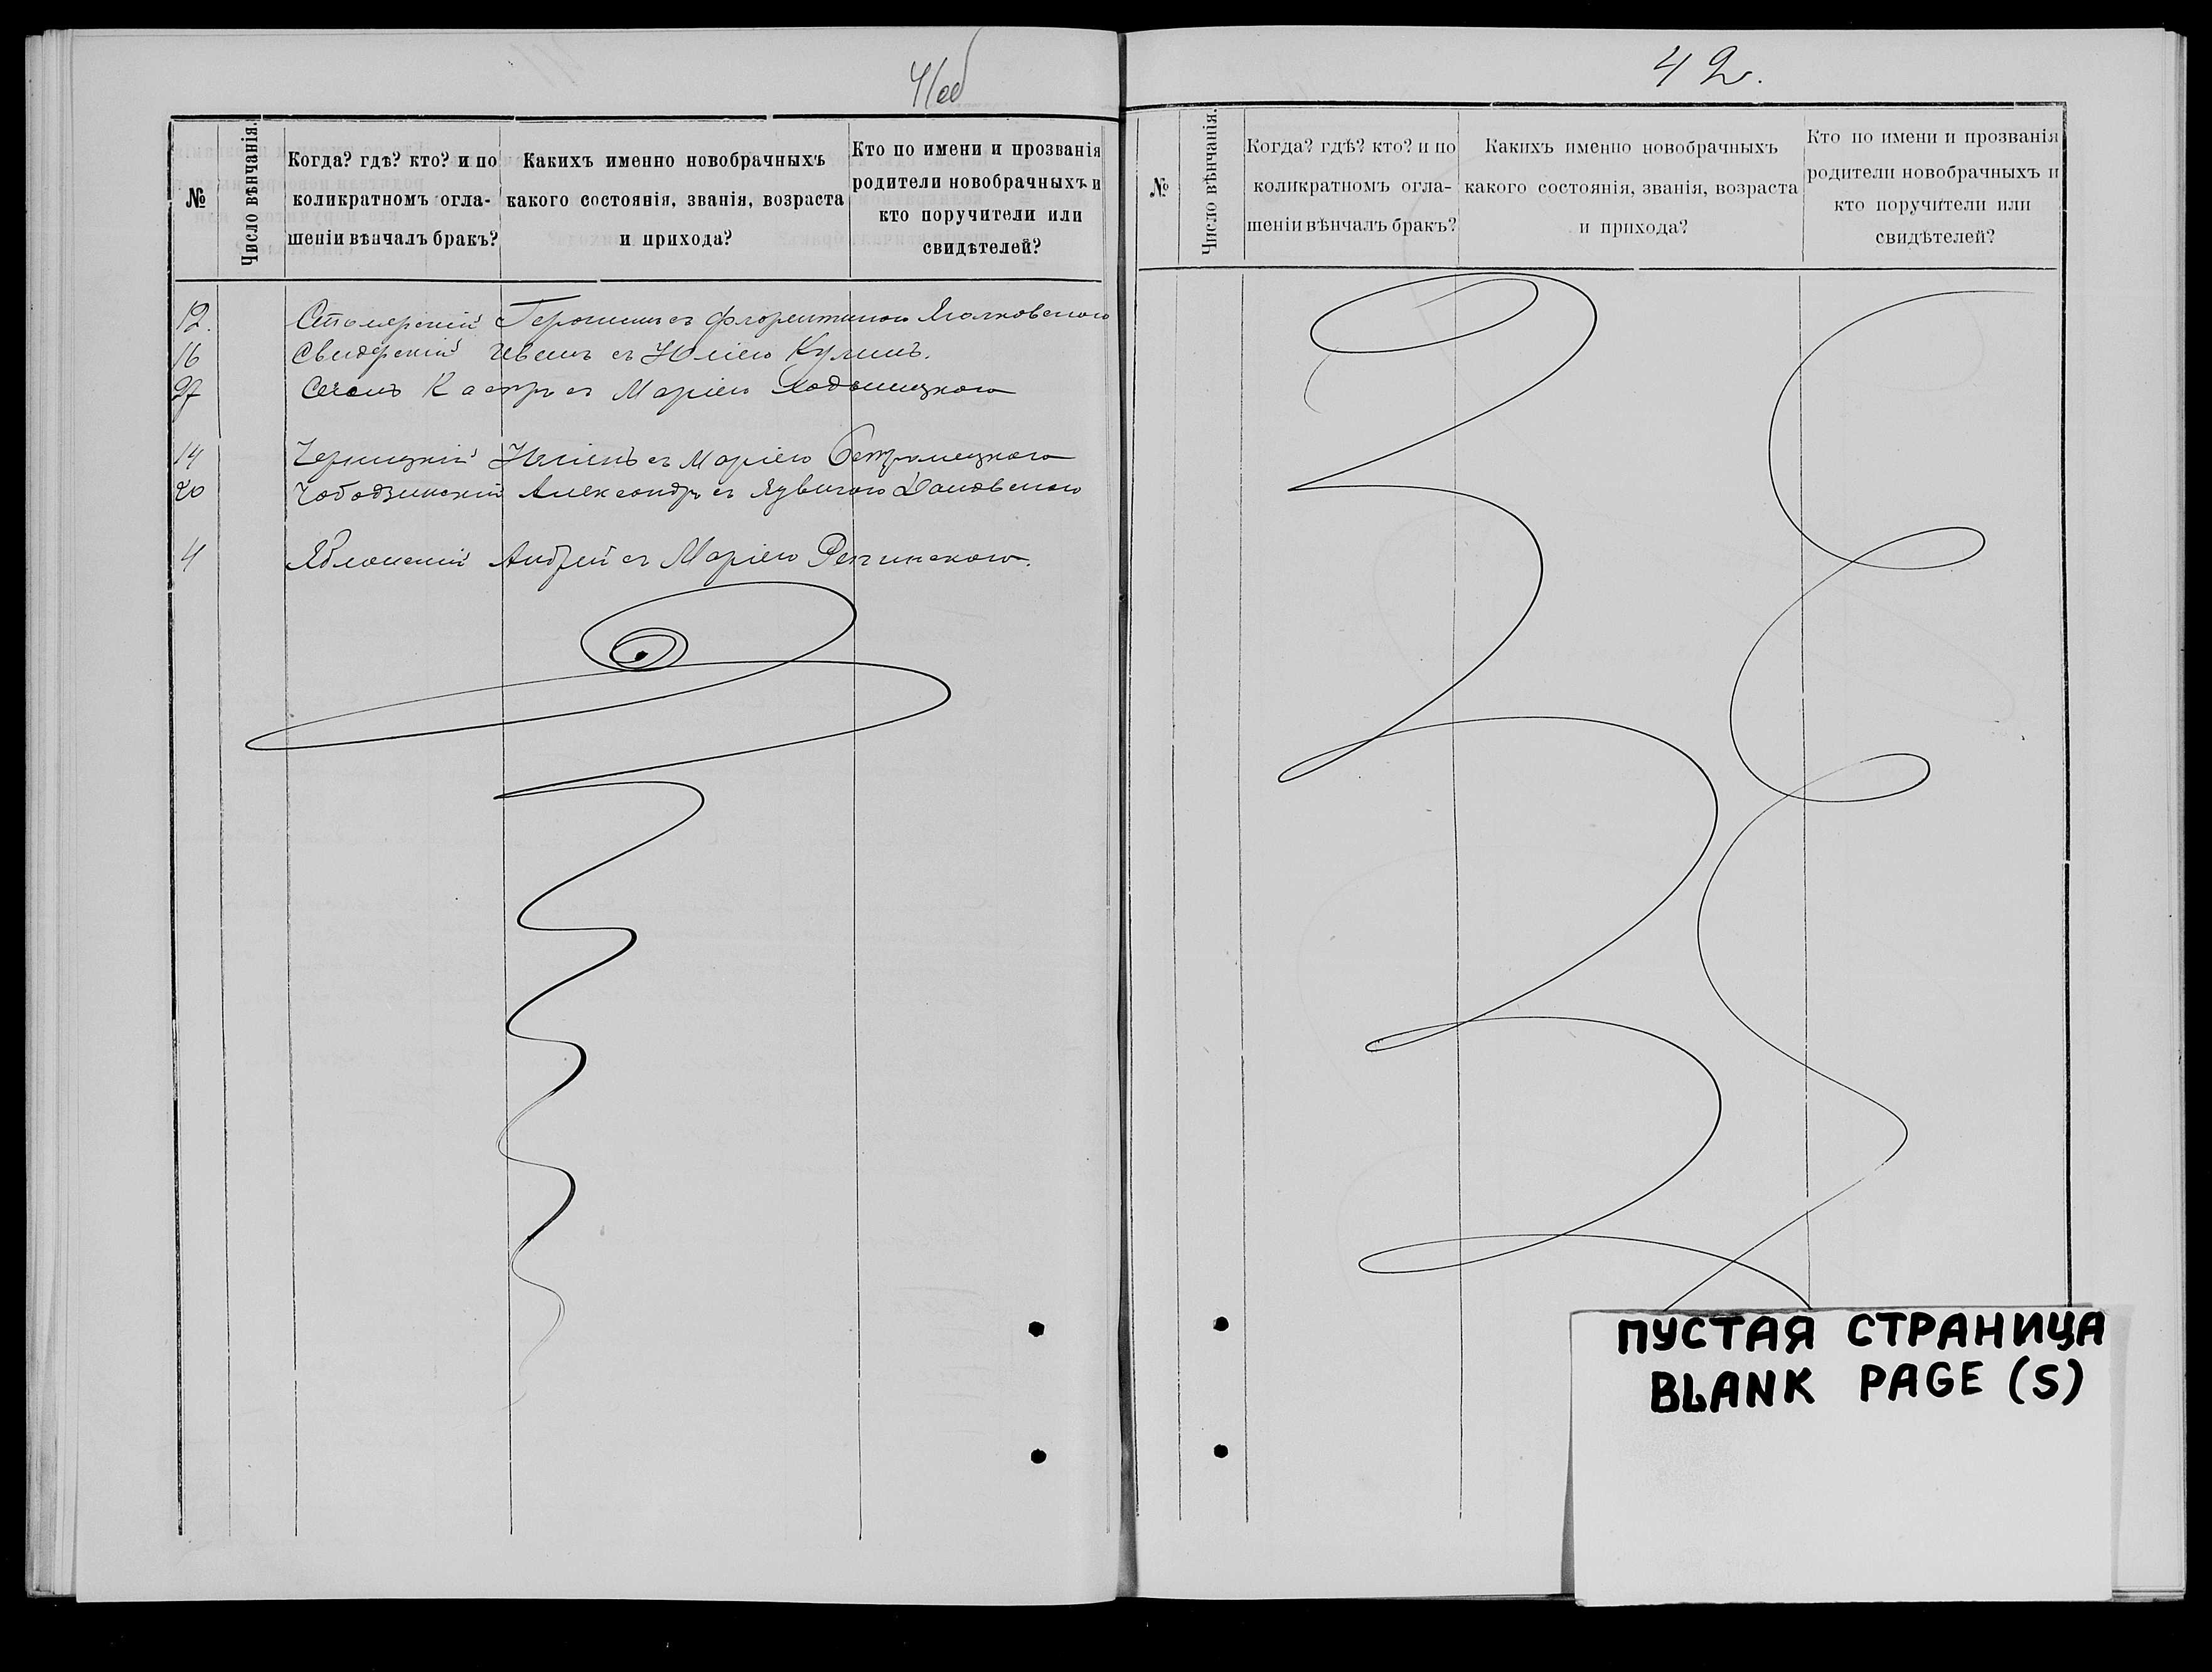 41об
№
Число вѣнчанія.
Когда? гдѣ? кто? и по
коликратномъ огла-
шеніи вѣнчалъ бракъ?
Какихъ именно новобрачныхъ
какого состоянія, званія, возраста
и прихода?
Кто по имени и прозванія
родители новобрачныхъ и
кто поручители или
свидѣтелей?
12. Столярскій Геронимъ съ Флорентиною
16 Свидерскій Иванъ съ Юліею Кулишъ.
27 Каспръ съ Маріею
14 Черницкій Юліанъ съ Маріею
20 Чободзинскій Александръ съ Ядвигою
4 Яблонскій Андрей съ Маріею
42.
№
Число вѣнчанія.
Когда? гдѣ? кто? и по
коликратномъ огла-
шеніи вѣнчалъ бракъ?
Какихъ именно новобрачныхъ
какого состоянія, званія, возраста
и прихода?
Кто по имени и прозванія
родители новобрачныхъ и
кто поручители или
свидѣтелей?
ПУСТАЯ СТРАНИЦА
BLANK PAGE (S)